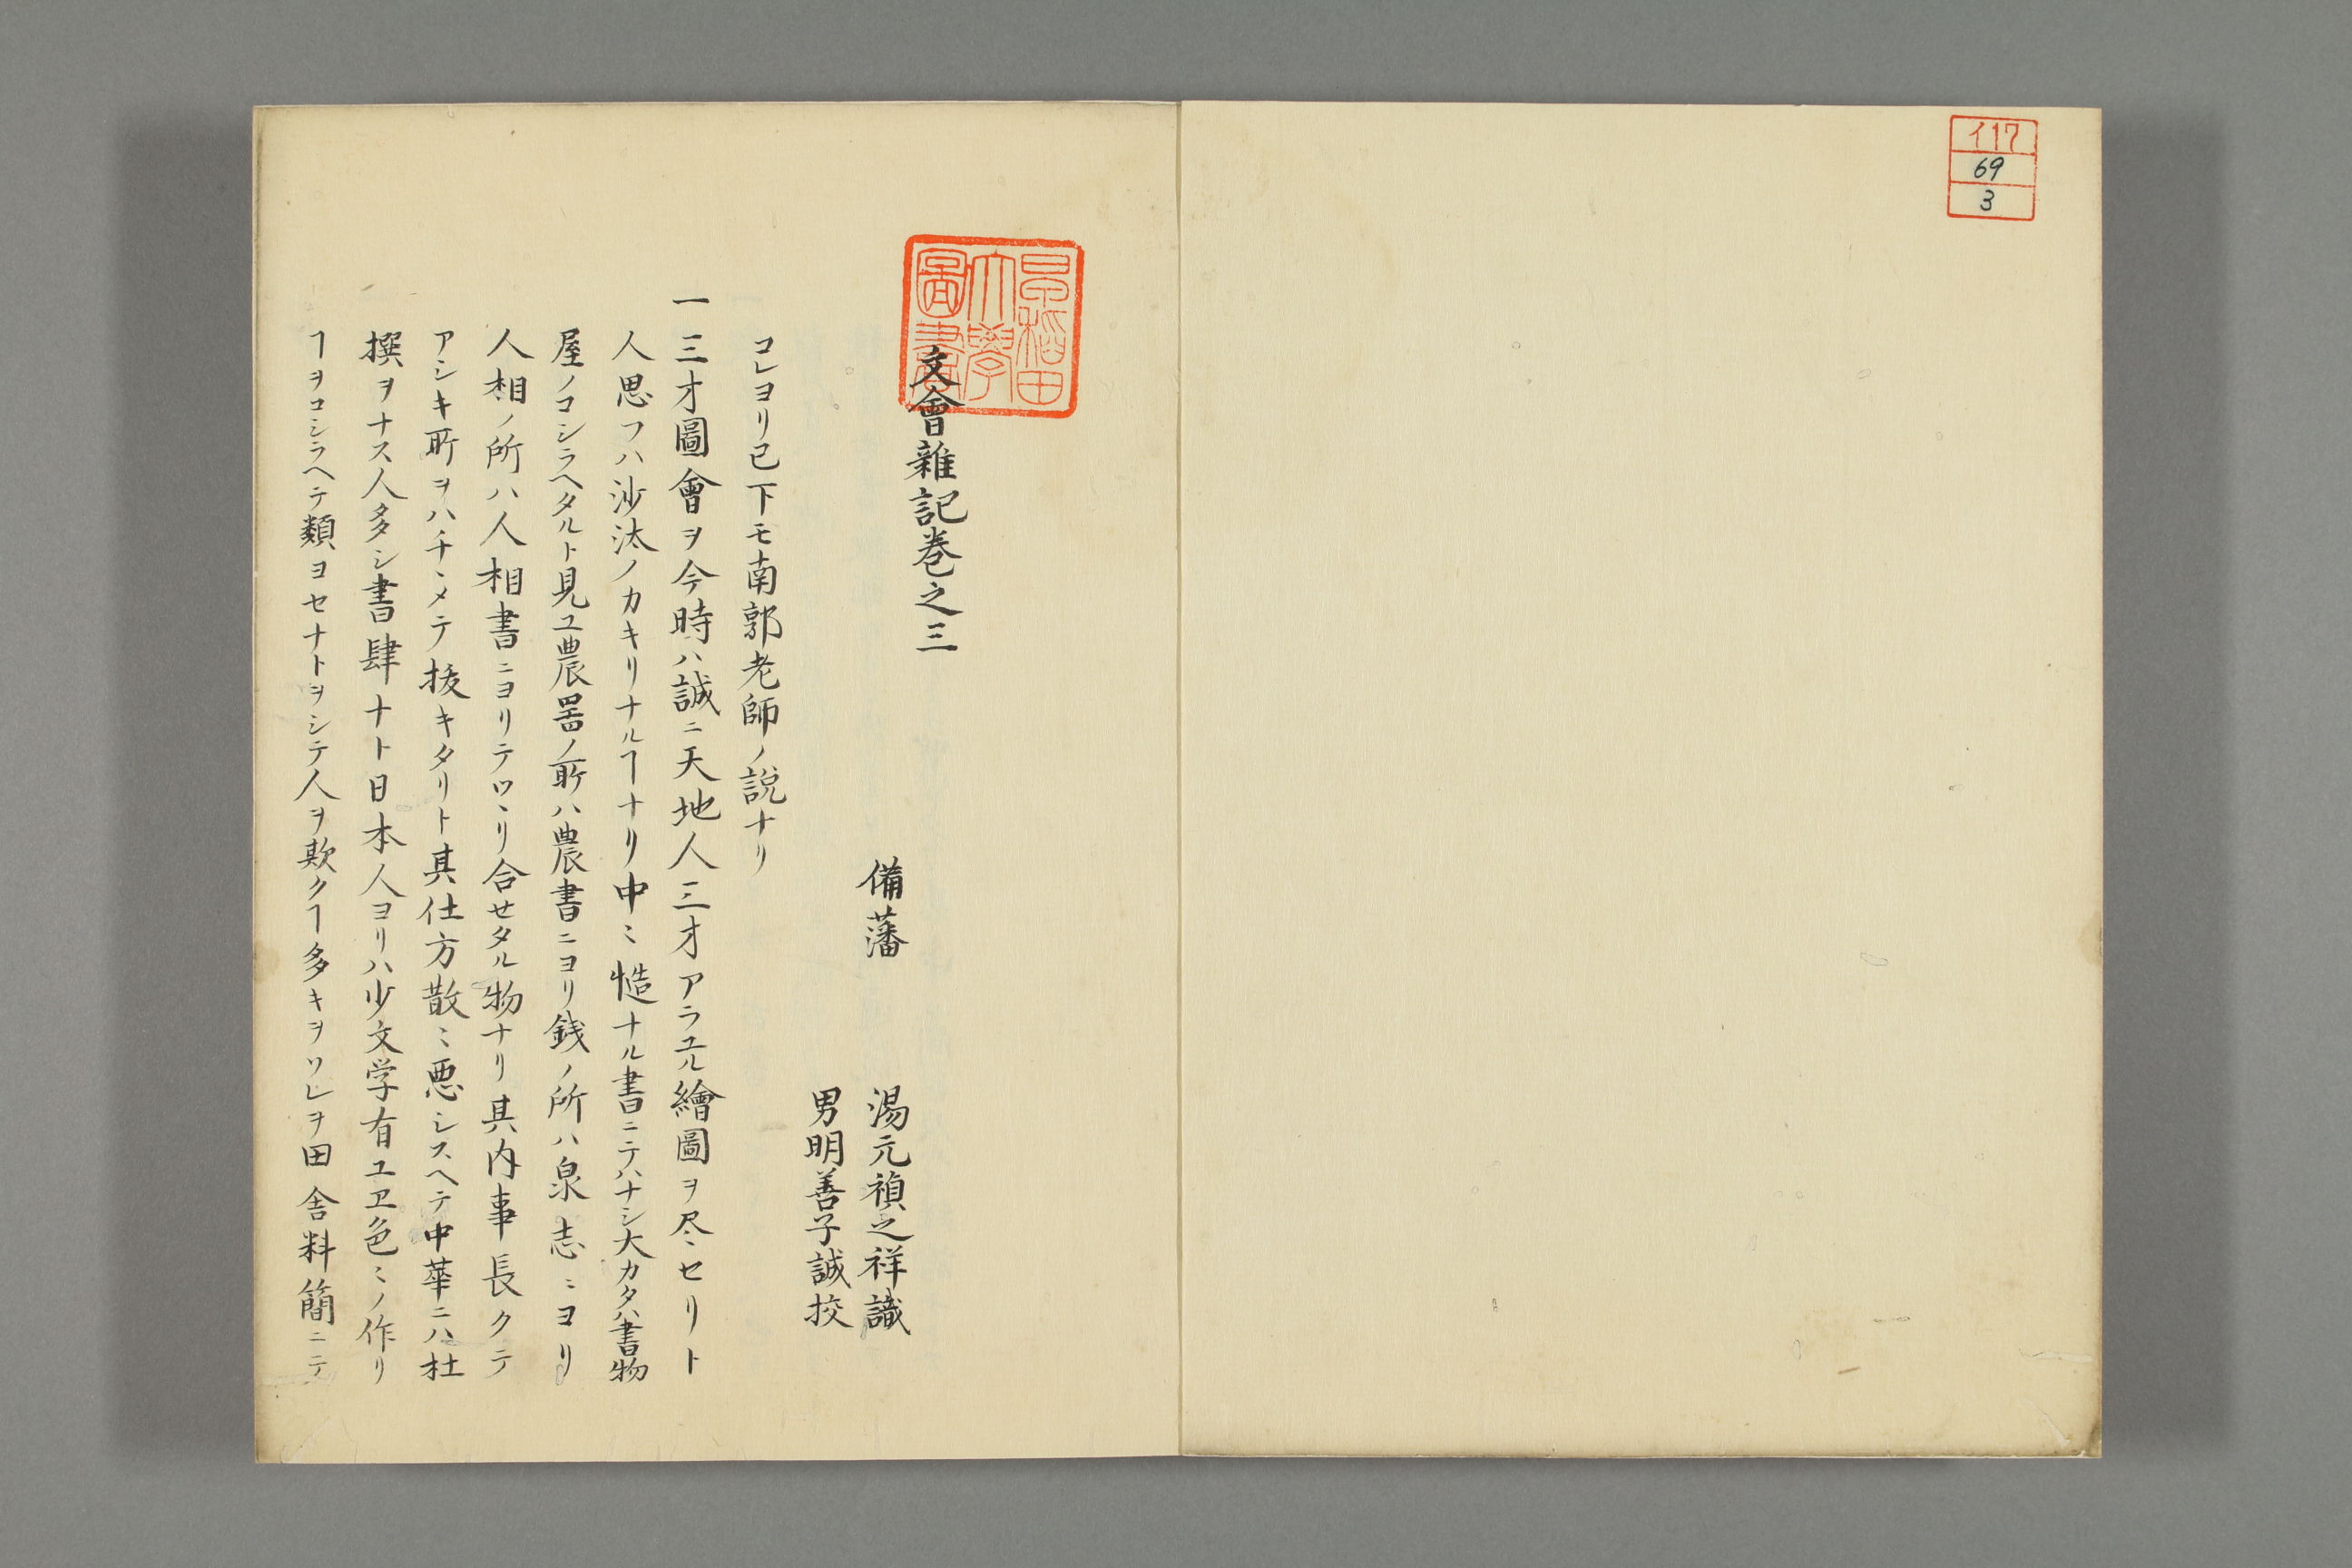 イ17
69
3
早稲田
大學
圖書
文會雜記巻之三
備藩 湯元禎之祥識
男明善子誠挍
コレヨリ已下モ南郭老師ノ説ナリ
一三才圖會ヲ今時ハ誠ニ天地人三才アラユル繪圖ヲ尽ヽセリト
人思フハ沙汰ノカキリナルヿナリ中ミ慥ナル書ニテハナシ大カタハ書物
屋ノコシラヘタルト見ユ農噐ノ所ハ農書ニヨリ銭ノ所ハ泉志ニヨリ
人相ノ所ハ人相書ニヨリテツヽリ合セタル物ナリ其内事長クテ
アシキ所ヲハチヽメテ抜キタリト其仕方散ミ悪シスヘテ中華ニハ杜
撰ヲナス人多シ書肆ナト日本人ヨリハ少文学有ユヱ色ミノ作リ
ヿヲコシラヘテ類ヨセナトヲシテ人ヲ欺クヿ多キヲソレヲ田舎料簡ニテ